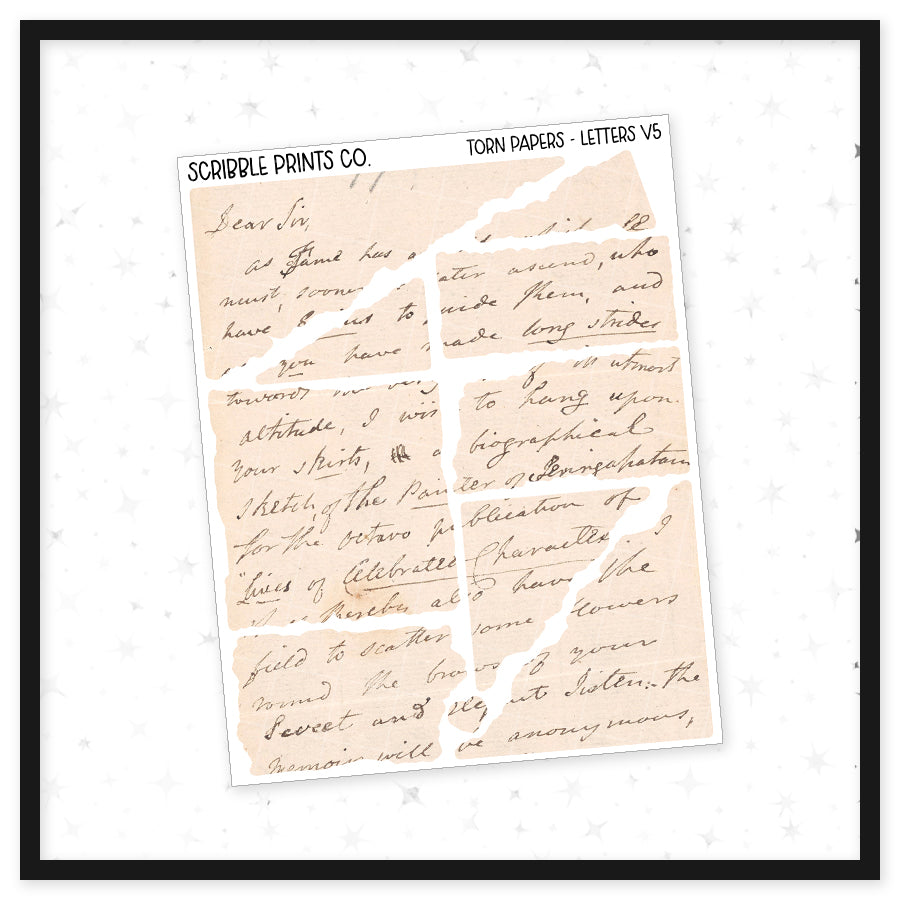 SCRIBBLE PRINTS CO.
TORN PAPERS - LETTERS V5
Dear Sir,
as Fame has a which
must, sooner ater ascend, who
have to uide them, and
you have made long strides
towards utmost
altitude, I wis to hang upon
your skirts, a biographical
sketch, of the Painter of Seringapatam
for the octavo publication of
"Lives of Celebrated Characters I
thereby also have the
field to scatter some flowers
round the brows of your
Sweet and ele ent Sister:- the
memoir will ve anonymous,